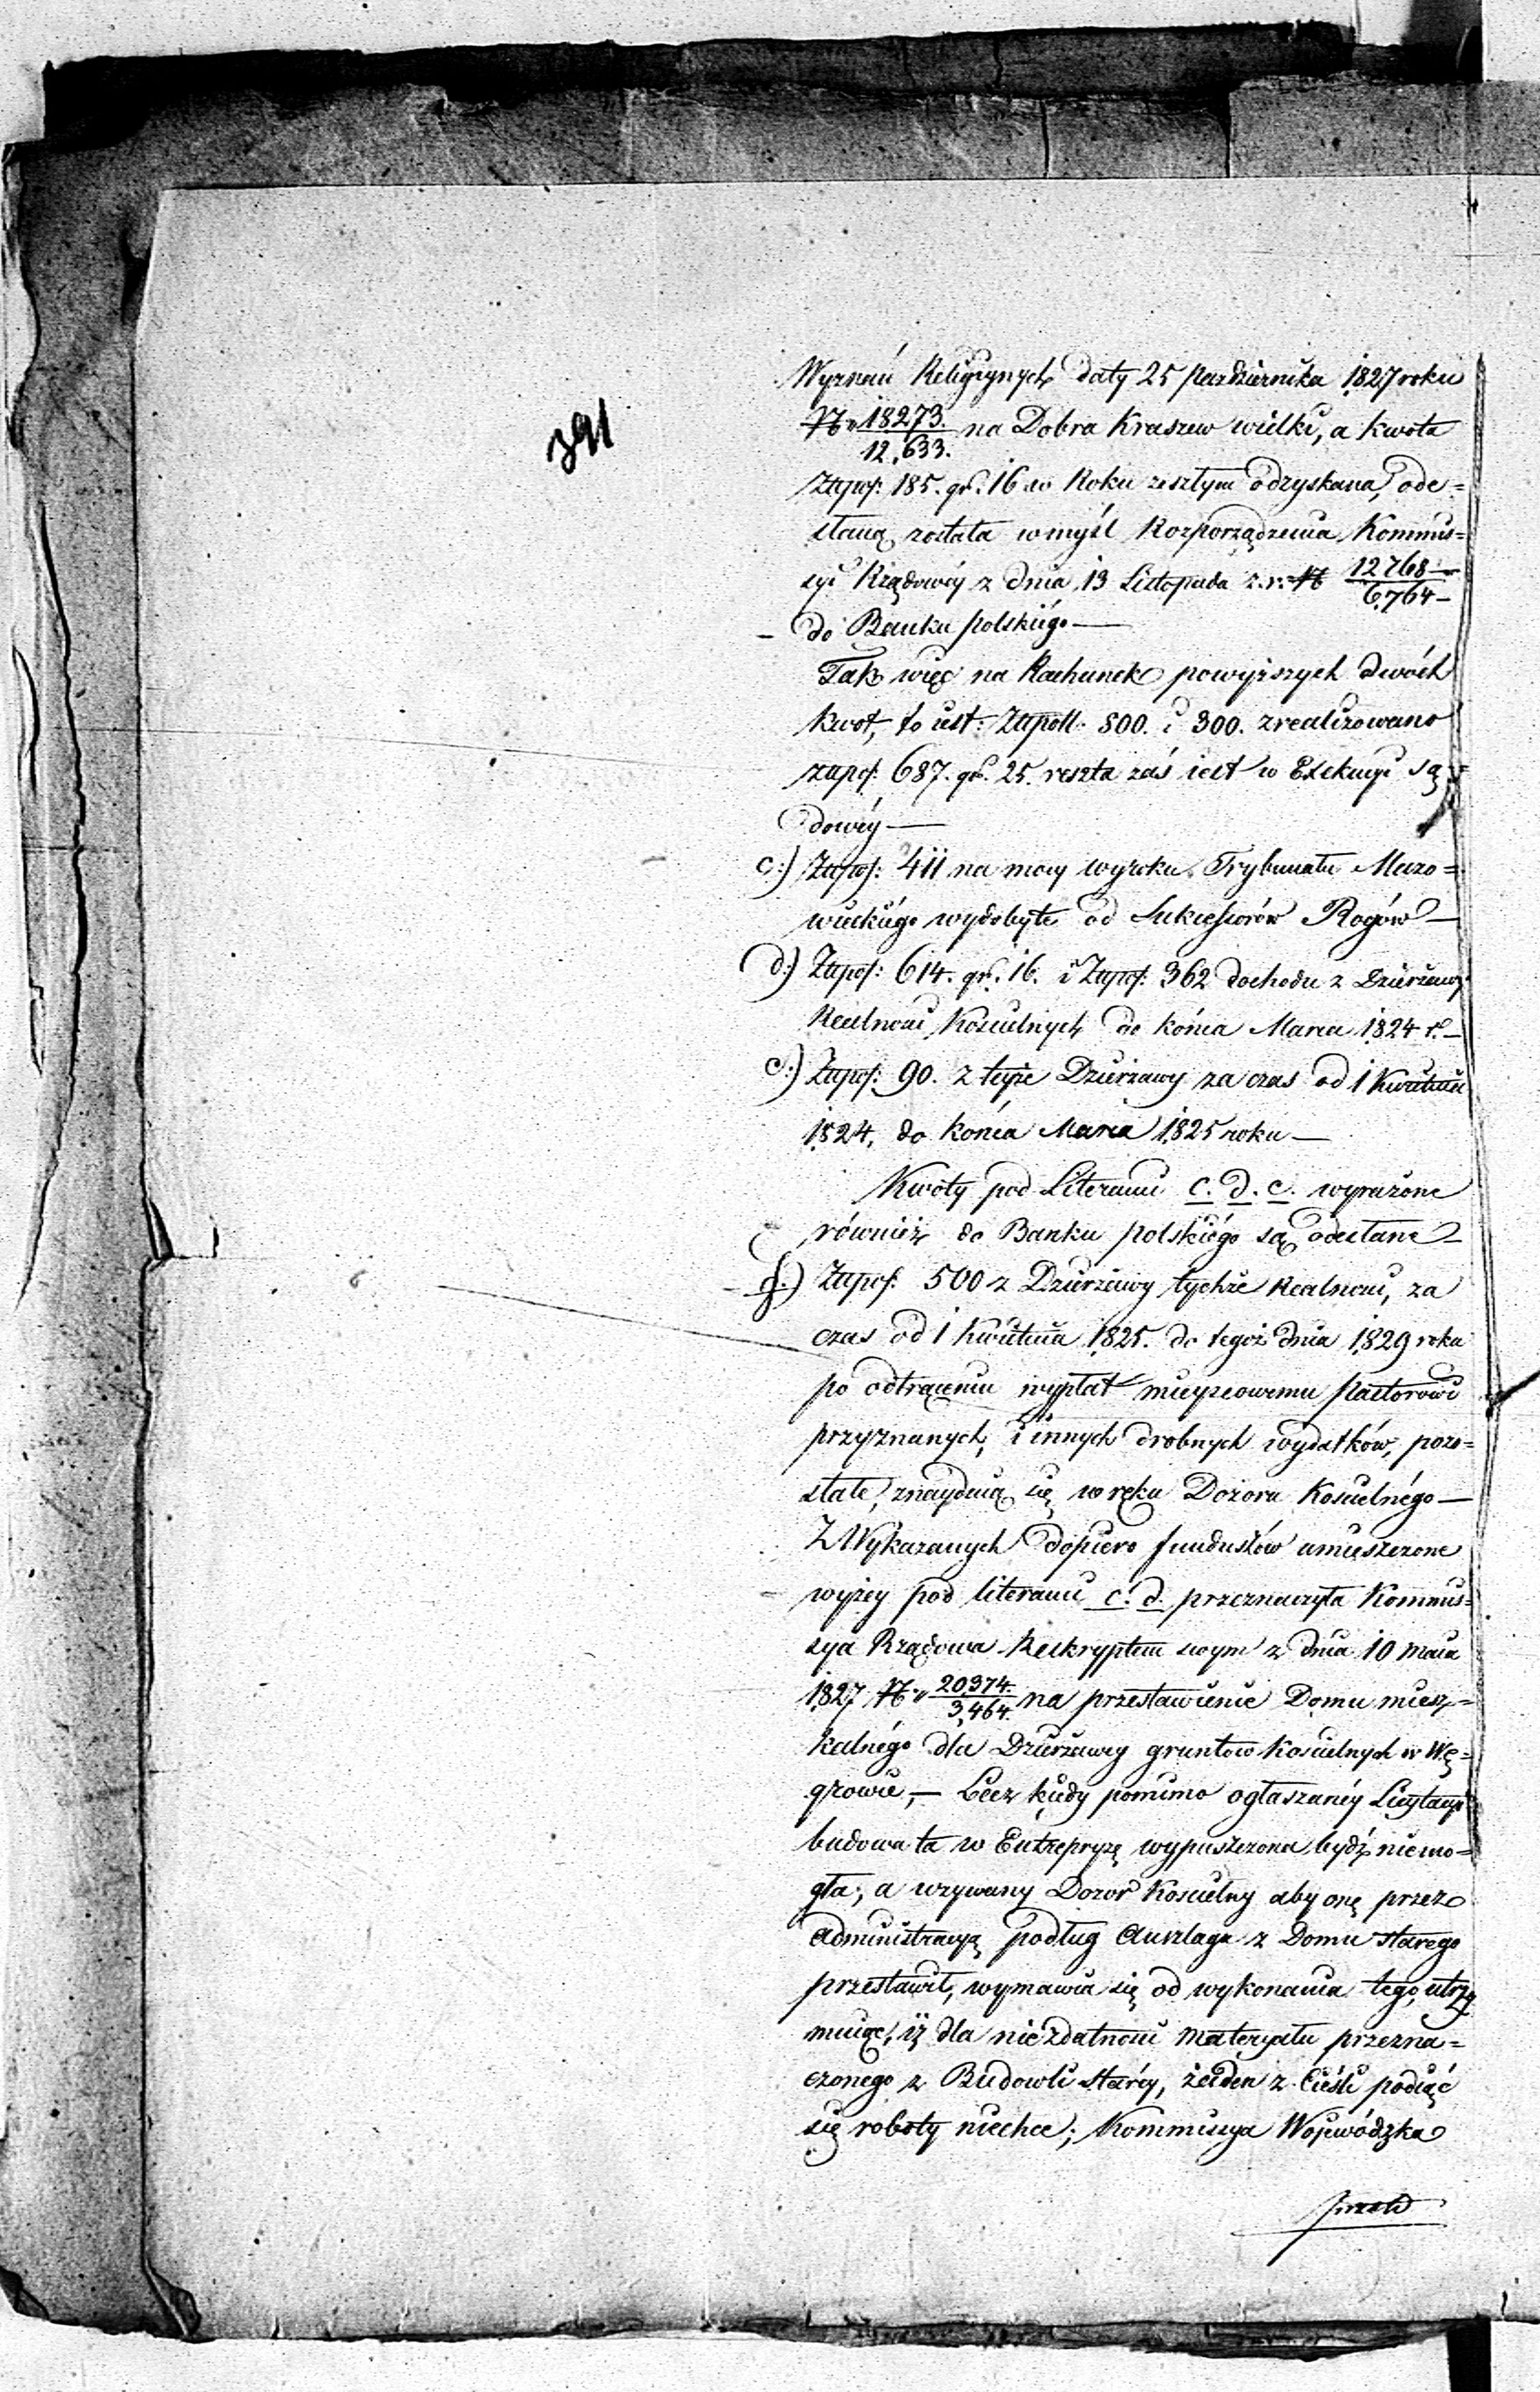 391
Wyznań Religiynych daty 25 Października 1827 roku
№ 18273./12,633. na Dobra Kraszew wielki, a kwota
Złpol: 185. gr. 16 w Roku zeszłym odzyskana, ode=
słaną została w myśl Rozporządzenia Kommis=
syi Rządowéy z dnia 13 Listopada z. r. № 12768/6764
do Banku polskiégo —
Tak więc na Rachunek powyższych dwóch
kwot, to iest: Złpoll. 800. i 300. zrealizowano
złpol: 687. gr. 25. reszta zaś iest w Exekucyi są=
dowéy —
c:) Złpol: 411 na mocy wyroku Trybunału Mazo=
wieckiégo wydobyte od Sukcessorów Rogów —
d:) Złpol: 614. gr. 16. i Złpol: 362 dochodu z Dzierżawy
Realności Kościelnych do końca Marca 1824 r. —
e:) Złpol: 90. z teyże Dzierżawy za czas od 1 Kwietnia
1824, do końca Marca 1825 roku —
Kwoty pod Literami c. d. e. wyrażone
również do Banku polskiégo są odesłane —
f.) Złpol: 500 z Dzierżawy tychże Realności, za
czas od 1 Kwietnia 1825. do tegoż dnia 1829 roku
po odtrąceniu wypłat mieyscowemu Pastorowi
przyznanych, i innych drobnych wydatków, pozo=
stałe, znayduią się w ręku Dozoru Kościelnégo —
Z Wykazanych dopiero funduszów umieszczone
wyżey pod literami c. d. przeznaczyła Kommis=
sya Rządowa Reskryptem swym z dnia 10 Maia
1827 № 20374./3,464. na przestawienie Domu miesz=
kalnégo dla Dzierżawcy gruntów Kościelnych w Wę=
growie, — Lecz kiedy pomimo ogłaszanéy Licytacyi
budowa ta w Entrepryzę wypuszczona bydź niemo=
gła; a wzywany Dozór Kościelny aby onę przez
administracyą podług Anszlagu z Domu starego
przestawił, wymawia się od wykonania tego, utrzy
muiąc, iż dla niezdatności materyału przezna=
czonego z Budowli staréy, żaden z Cieśli podiąć
się roboty niechce; Kommissya Woiewódzka